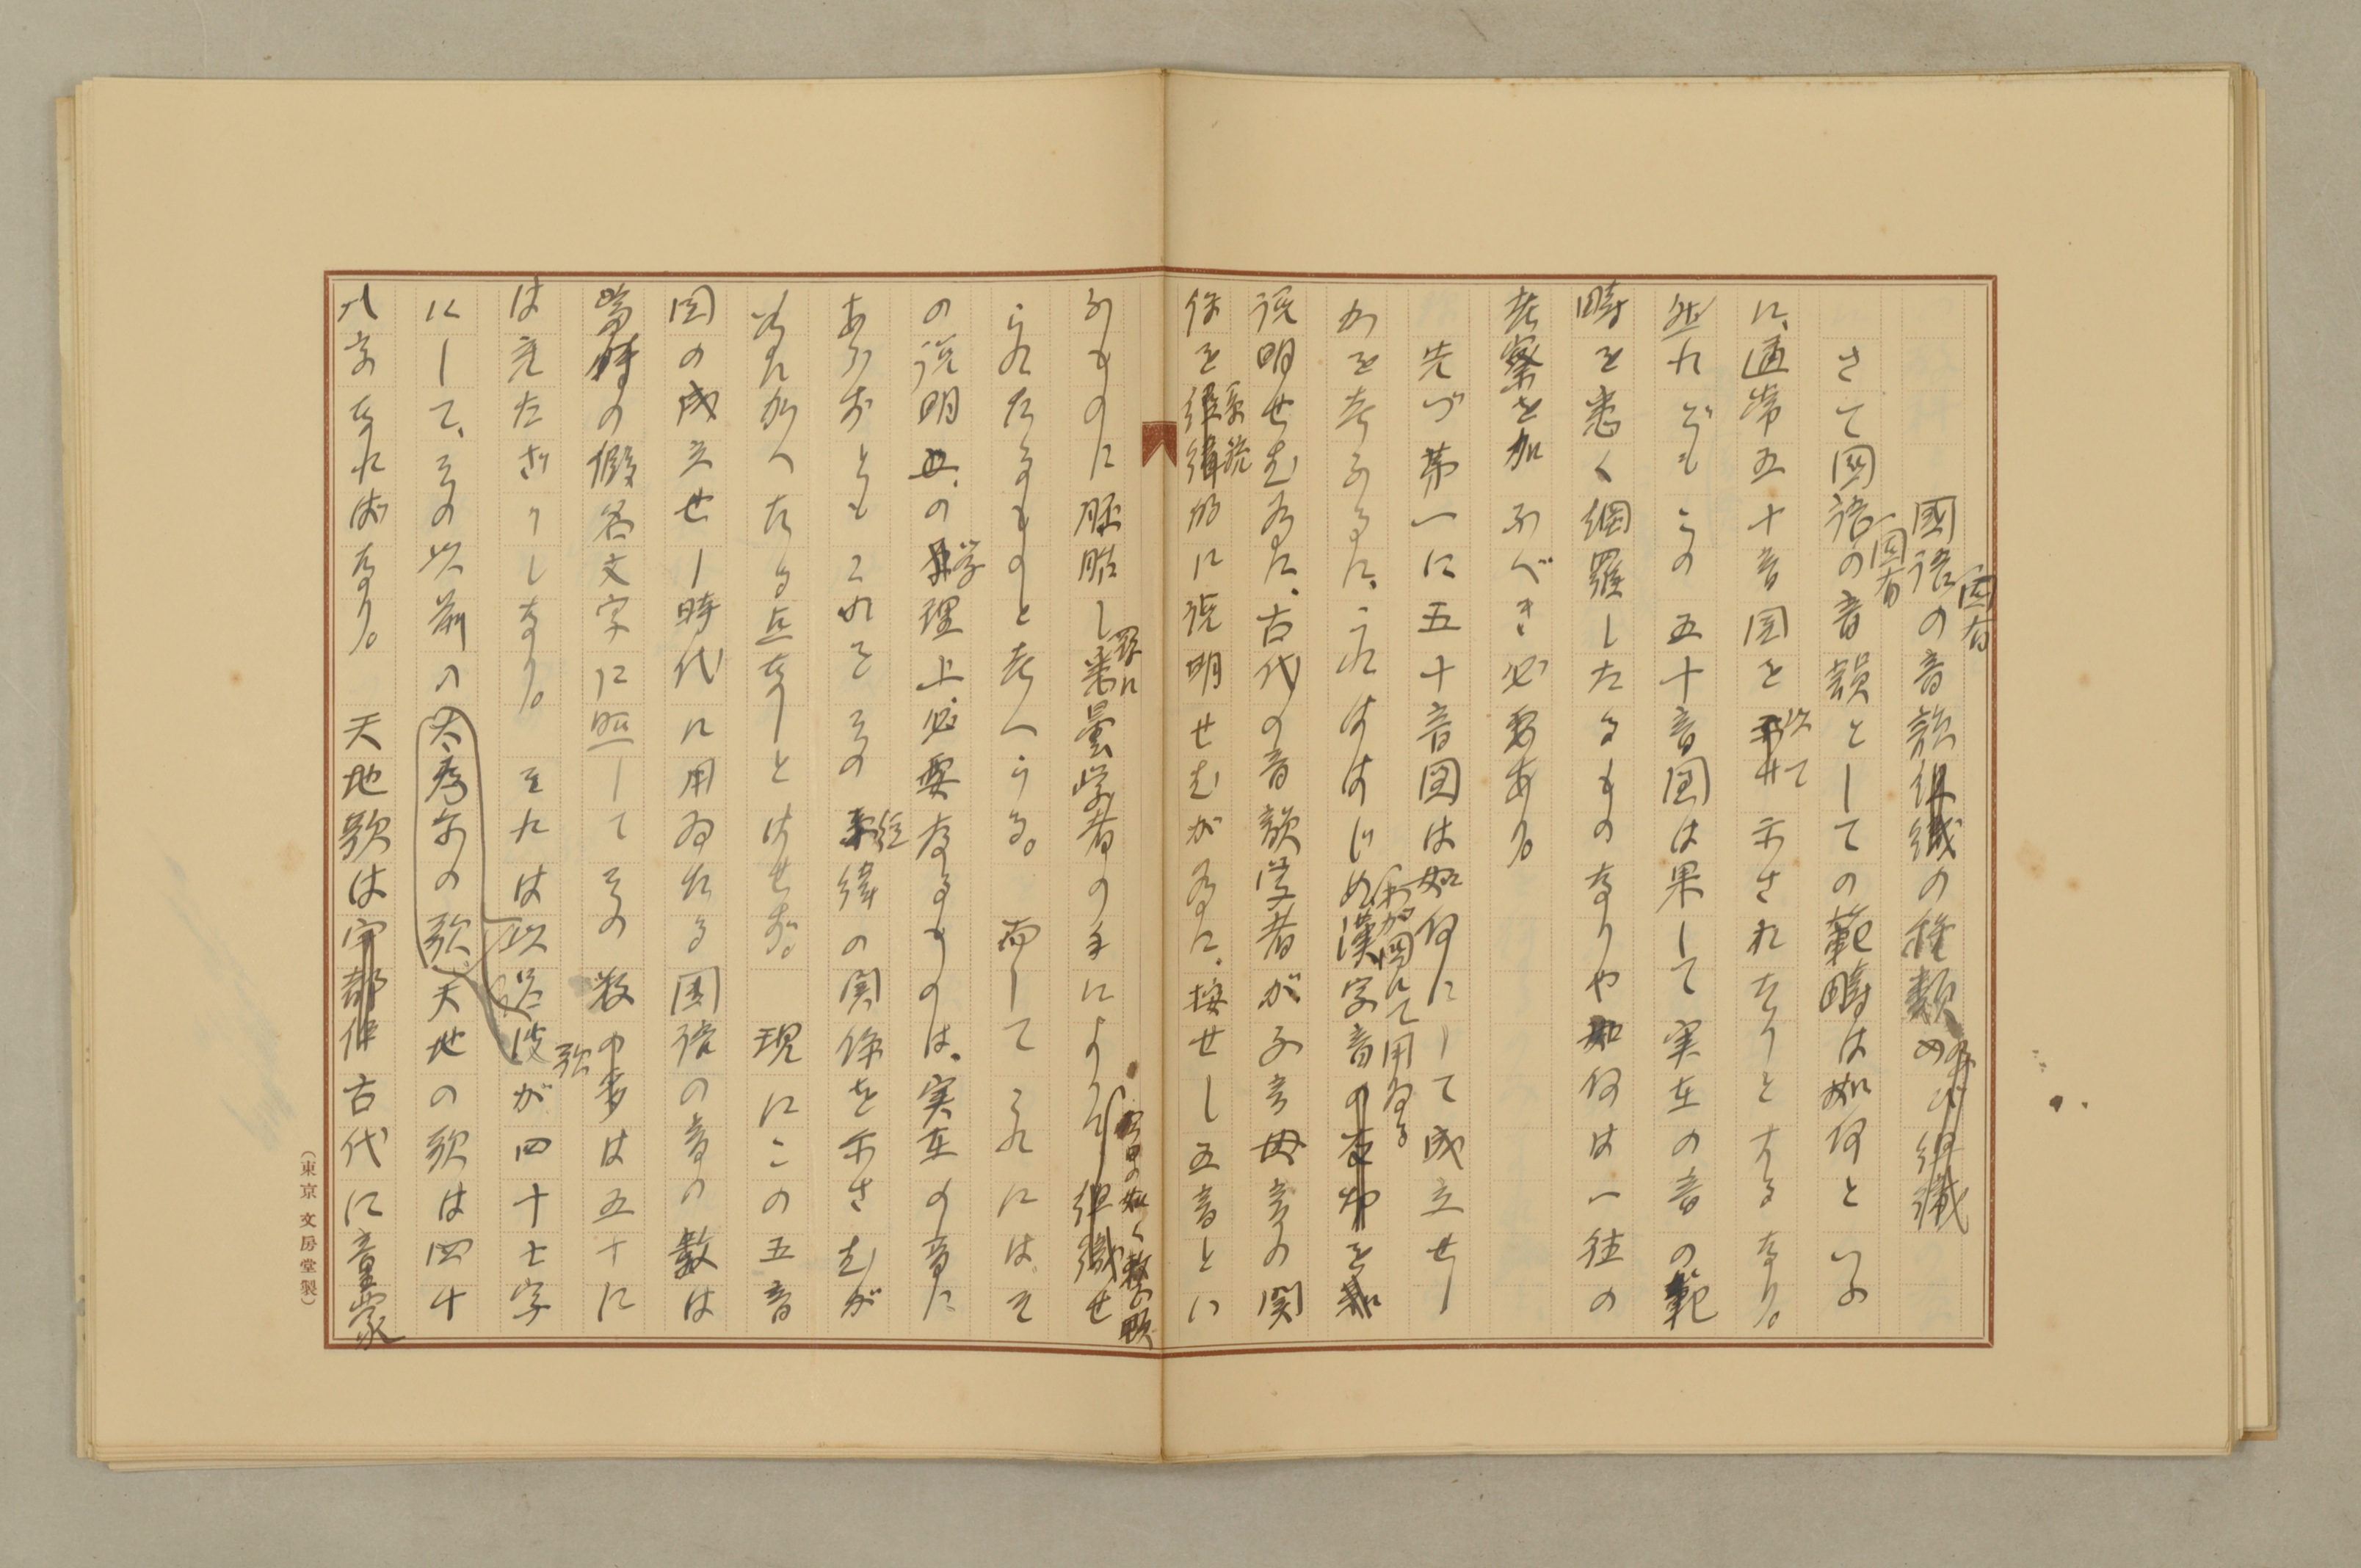 國語の固有音韻組織の種類及び組織
さて國語の固有音韻としての範疇は如何といふ
に、通常五十音図を以て示されたりとするなり。
然れどもこの五十音図は果して実在の音の範
疇を悉く網羅したるものなりや如何は一往の
考察を加ふべき必要あり。
先づ第一に五十音図は如何にして成立せし
かを考ふるに、これははじめ漢字音の
説明せむ為に、古代の音韻学者が子音母音の関
係を系統的に説明せむが為に、按せし五音とい
ふものに胚胎し更に悉曇学者の手によりて今の如く整頓せ
られたるものと考へらる。而してこれには、そ
の説明の学理上、必要なるものは、実在の音に
あらずともこれをその経緯の関係を示さむが
為に加へたる点なしとはせず。現にこの五音
図の成立せし時代に用ゐたる国語の音の数は
當時の假名文字に照してその数は五十に
は充たざりしなり。それは以呂波歌が四十七字
にして、その以前の大為尓の歌、天地の歌は四十
八字なればなり。天地歌は古代に童蒙
（東京文房堂製）